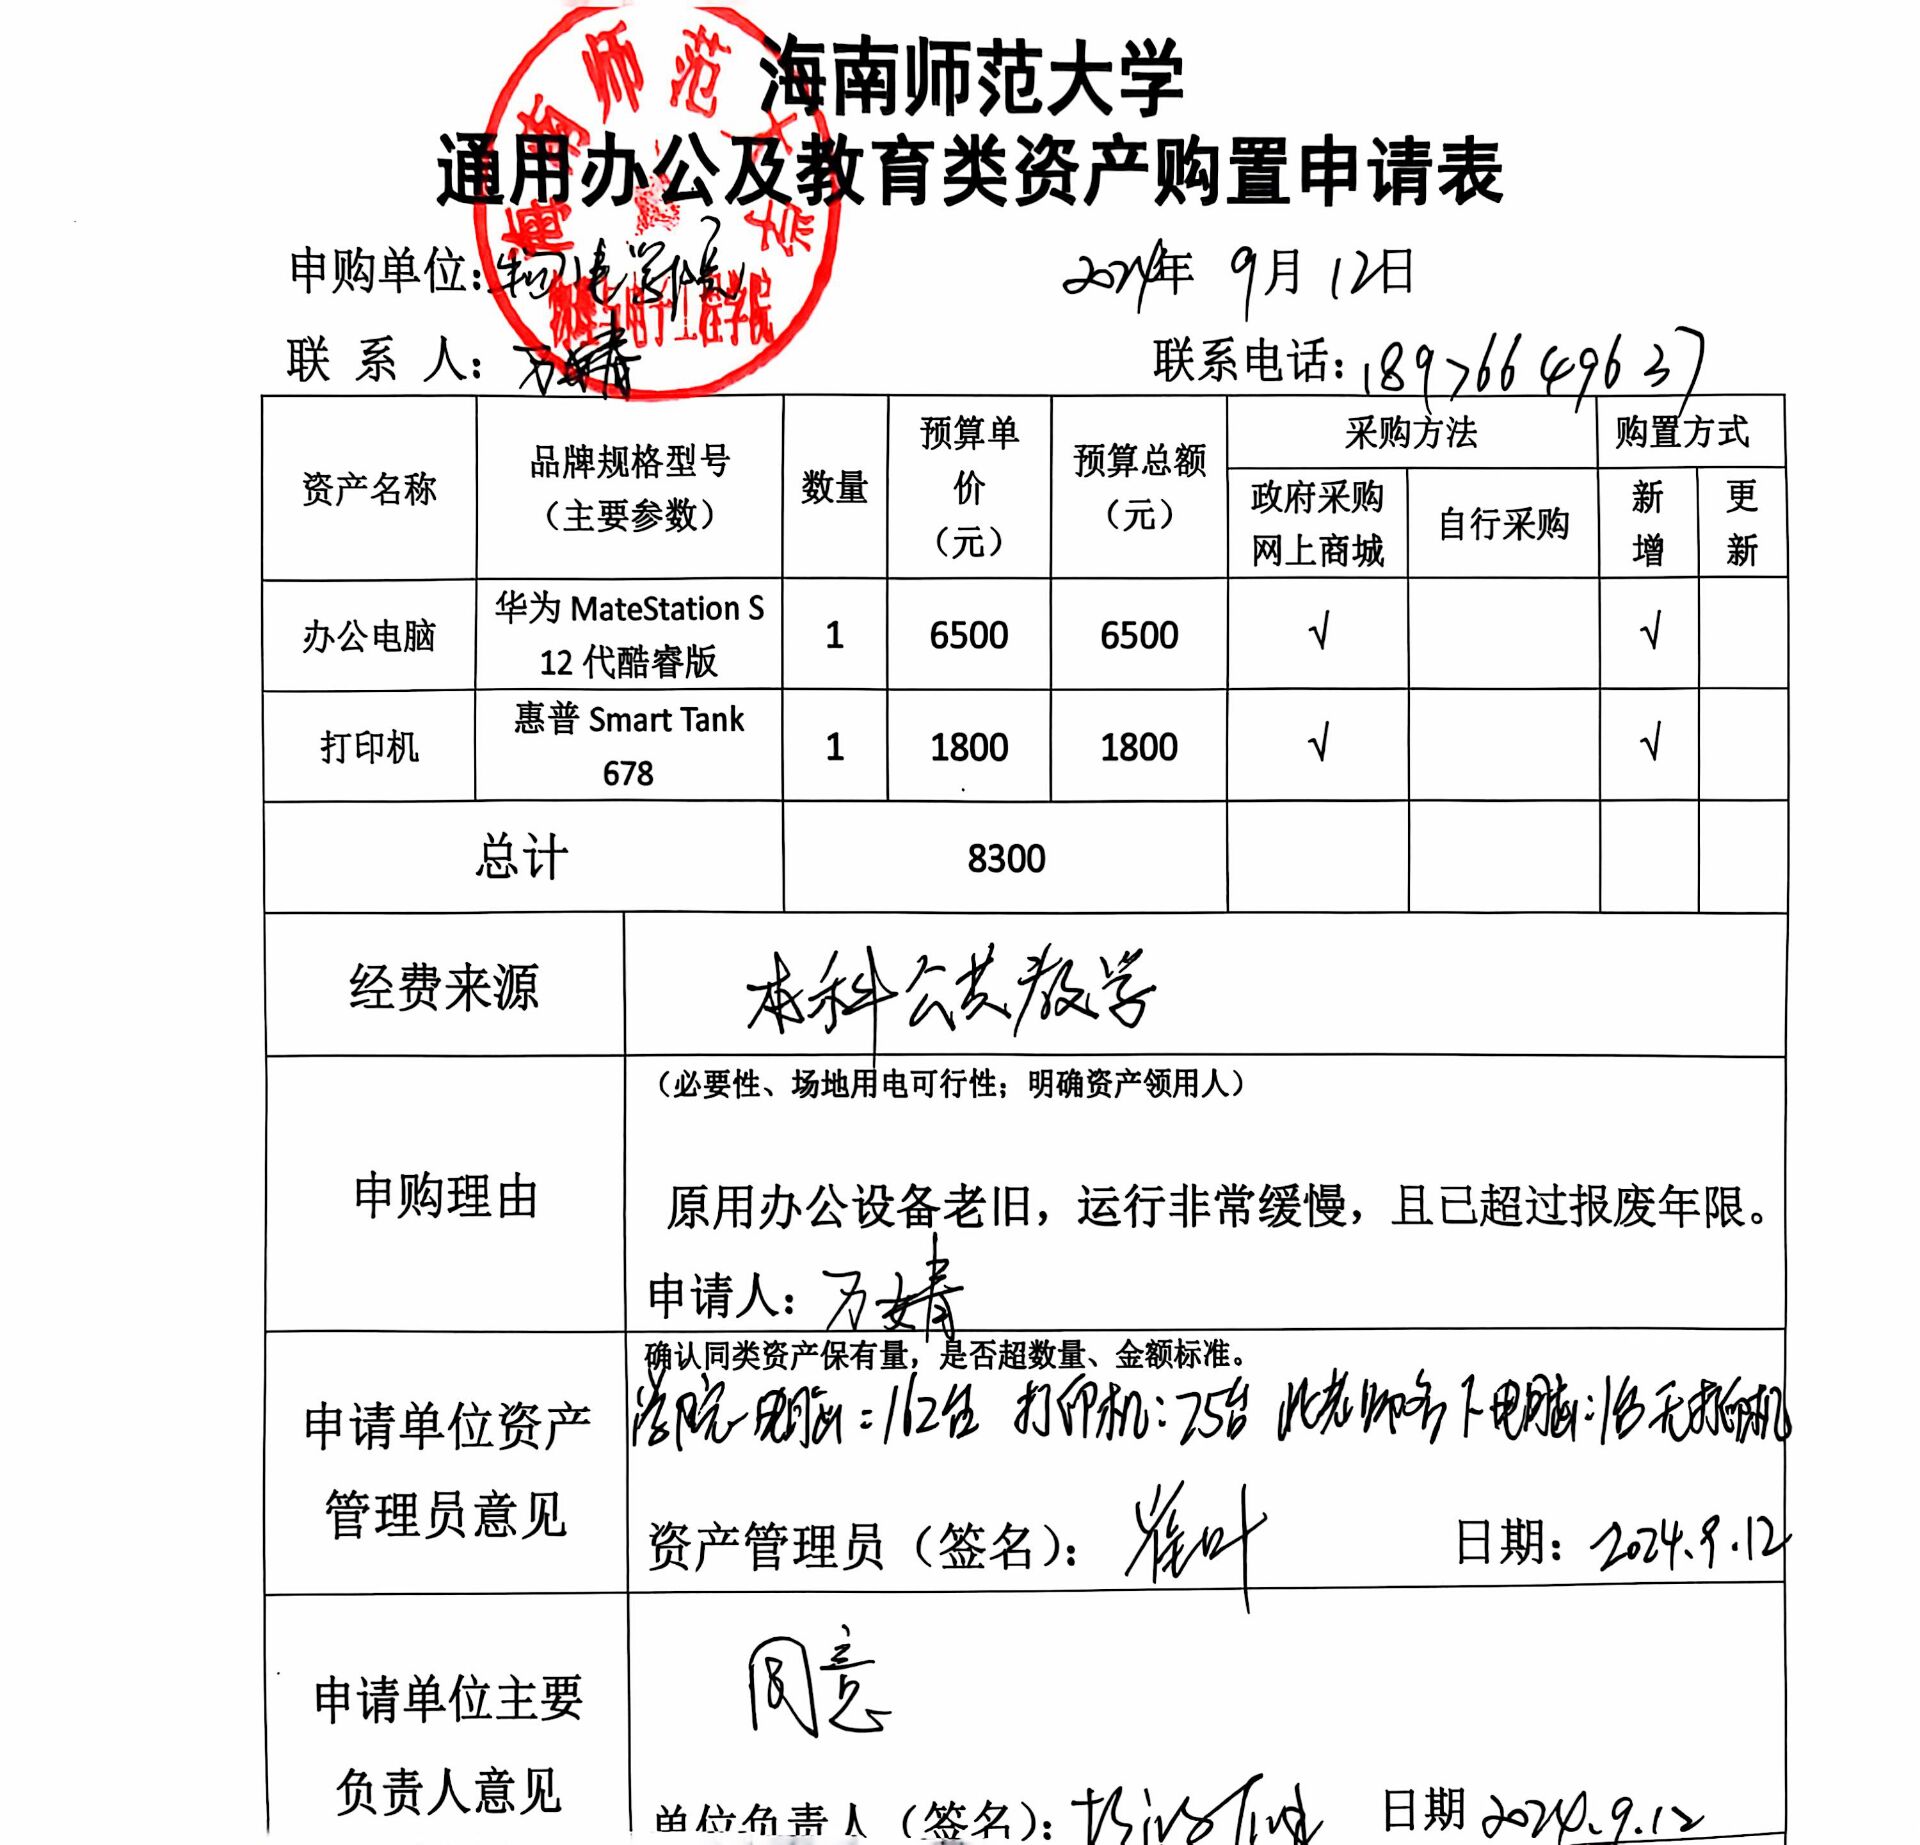 海南师范大学
通用办公及教育类资产购置申请表
海南师范大学
物理与电子工程学院
申购单位:物电学院
2024年 9月 12日
联 系 人: 万婧
联系电话: 18976649637
资产名称 品牌规格型号（主要参数） 数量 预算单价（元） 预算总额（元） 采购方法 购置方式
政府采购网上商城 自行采购 新增 更新
办公电脑 华为 MateStation S 12 代酷睿版 1 6500 6500 √ √
打印机 惠普 Smart Tank 678 1 1800 1800 √ √
总计 8300
经费来源 本科公共教学
申购理由
（必要性、场地用电可行性；明确资产领用人）
原用办公设备老旧，运行非常缓慢，且已超过报废年限。
申请人: 万婧
申请单位资产管理员意见
确认同类资产保有量，是否超数量、金额标准。
学院电脑:162台 打印机:75台 此老师名下电脑:1台 无打印机
资产管理员（签名）: 崔叶 日期: 2024.9.12
申请单位主要负责人意见
同意
单位负责人（签名）: 日期 2024.9.12